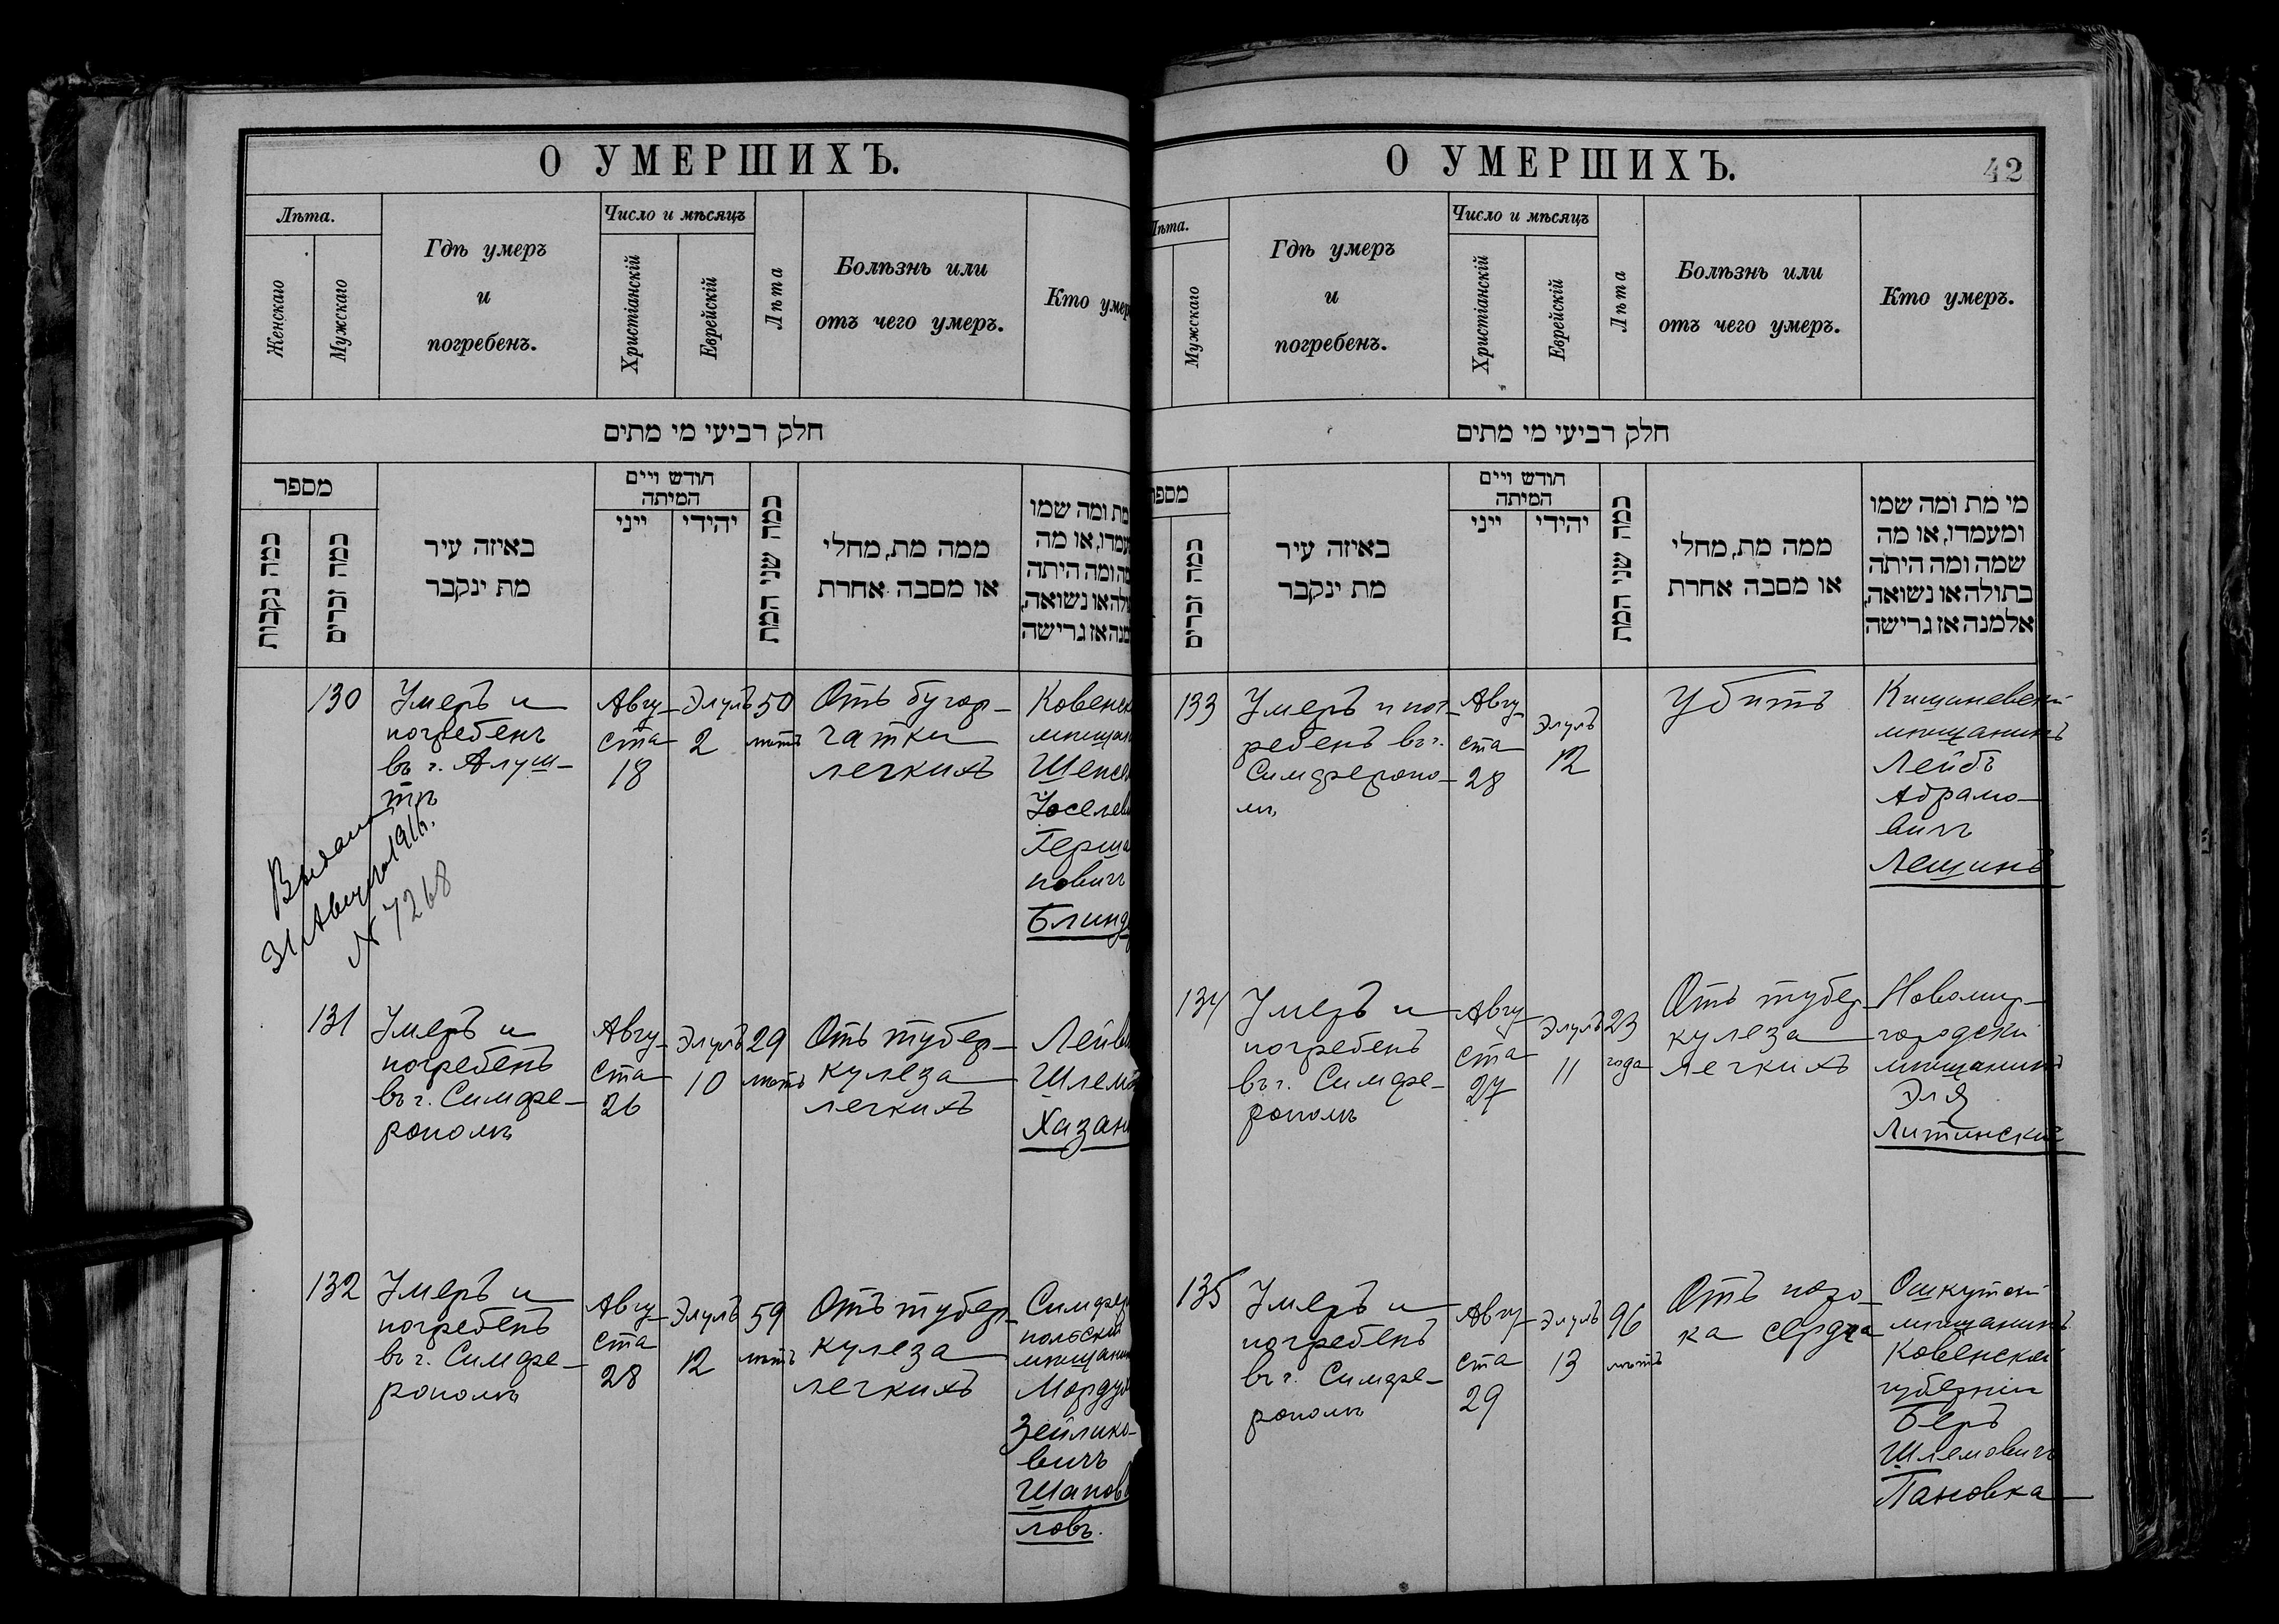 О УМЕРШИХЪ.
Лѣта.
Женскаго
Мужскаго
Гдѣ умеръ
и
погребенъ.
Число и мѣсяцъ
Христіанскій
Еврейскій
Лѣта
Болѣзнь или
отъ чего умеръ.
Кто умер
חלק רביעי מי מתים
מספר
כמה נקבות
כמה זכרים
באיזה עיר
מת ינקבר
חודש ויים
המיתה
ייני
יהודי
כמה שני המת
ממה מת, מחלי
או מסבה אחרת
מת ומה שמו
עמדו, או מה
מה ומה היתה
ולה או נשואה,
מנה אז גרישה
130
Умеръ и
погребенъ
въ г. Алуш-
тѣ
Авгу-
ста
18
Элулъ
2
50
лѣтъ
Отъ бугор-
чатки
легкихъ
Ковенск
мѣщан
Шепсе
Іоселеви
Герша
новичъ
Блинде
31 Августа 1916г.
N 7268
131
Умеръ и
погребенъ
въ г. Симфе-
рополѣ
Авгу-
ста
26
Элулъ
10
29
лѣтъ
Отъ тубер-
кулеза
легкихъ
Лейв
Шлем
Хазан
132
Умеръ и
погребенъ
въ г. Симфе-
рополѣ
Авгу-
ста
28
Элулъ
12
59
лѣтъ
Отъ тубер-
кулеза
легкихъ
Симфер
польскій
мѣщанин
Мордух
Зейлико-
вичъ
Шапов
ловъ.
О УМЕРШИХЪ.
42
Лѣта.
Мужскаго
Гдѣ умеръ
и
погребенъ.
Число и мѣсяцъ
Христіанскій
Еврейскій
Лѣта
Болѣзнь или
отъ чего умеръ.
Кто умеръ.
חלק רביעי מי מתים
מספר
כמה זכרים
באיזה עיר
מת ינקבר
חודש ויים
המיתה
ייני
יהודי
כמה שני המת
ממה מת, מחלי
או מסבה אחרת
מי מת ומה שמו
ומעמדו, או מה
שמה ומה היתה
בתולה או נשואה,
אלמנה אז גרישה
133
Умеръ и пог-
ребенъ въ г.
Симферопо-
лѣ
Авгу-
ста
28
Элулъ
12
Убитъ
Кишиневскій
мѣщанинъ
Лейбъ
Абрамо-
вичъ
Лещинъ
134
Умеръ и
погребенъ
въ г. Симфе-
рополѣ
Авгу-
ста
27
Элулъ
11
23
года
Отъ тубер-
кулеза
легкихъ
Новомир-
городскій
мѣщанинъ
Эля
Литинскій
135
Умеръ и
погребенъ
въ г. Симфе-
рополѣ
Авгу-
ста
29
Элулъ
13
96
лѣтъ
Отъ поро-
ка сердца
мѣщанинъ
Ковенской
губерніи
Беръ
Шлемовичъ
Пановка